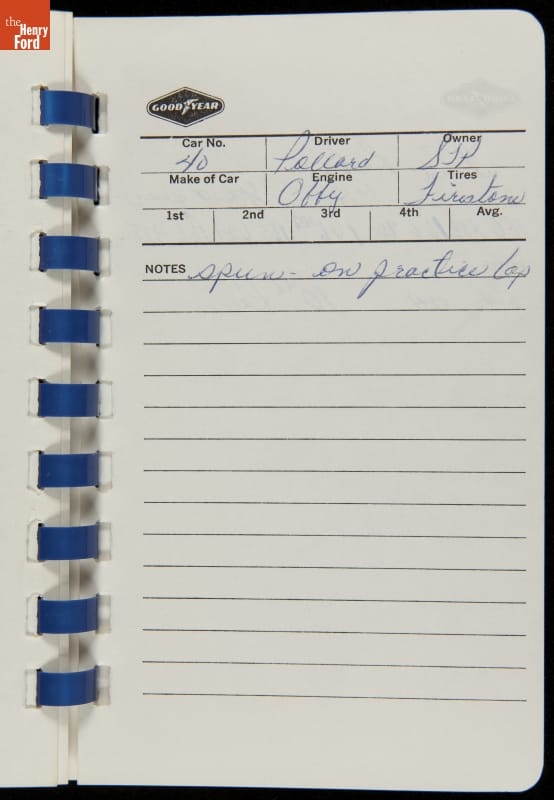 the
Henry
Ford
GOOD YEAR
Car No. Driver Owner
40 Pollard STP
Make of Car Engine Tires
Offy Firestone
1st 2nd 3rd 4th Avg.
NOTES spun - on practice lap